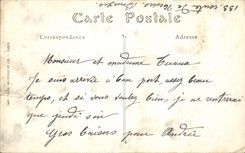 Carte Postale
Correspondance
Adresse
Monsieur et madame
Je suis arrivée à bon port, assez beau
temps, et si vous voulez bien, je ne rentrerai
que jeudi soir
Gros baisers pour André